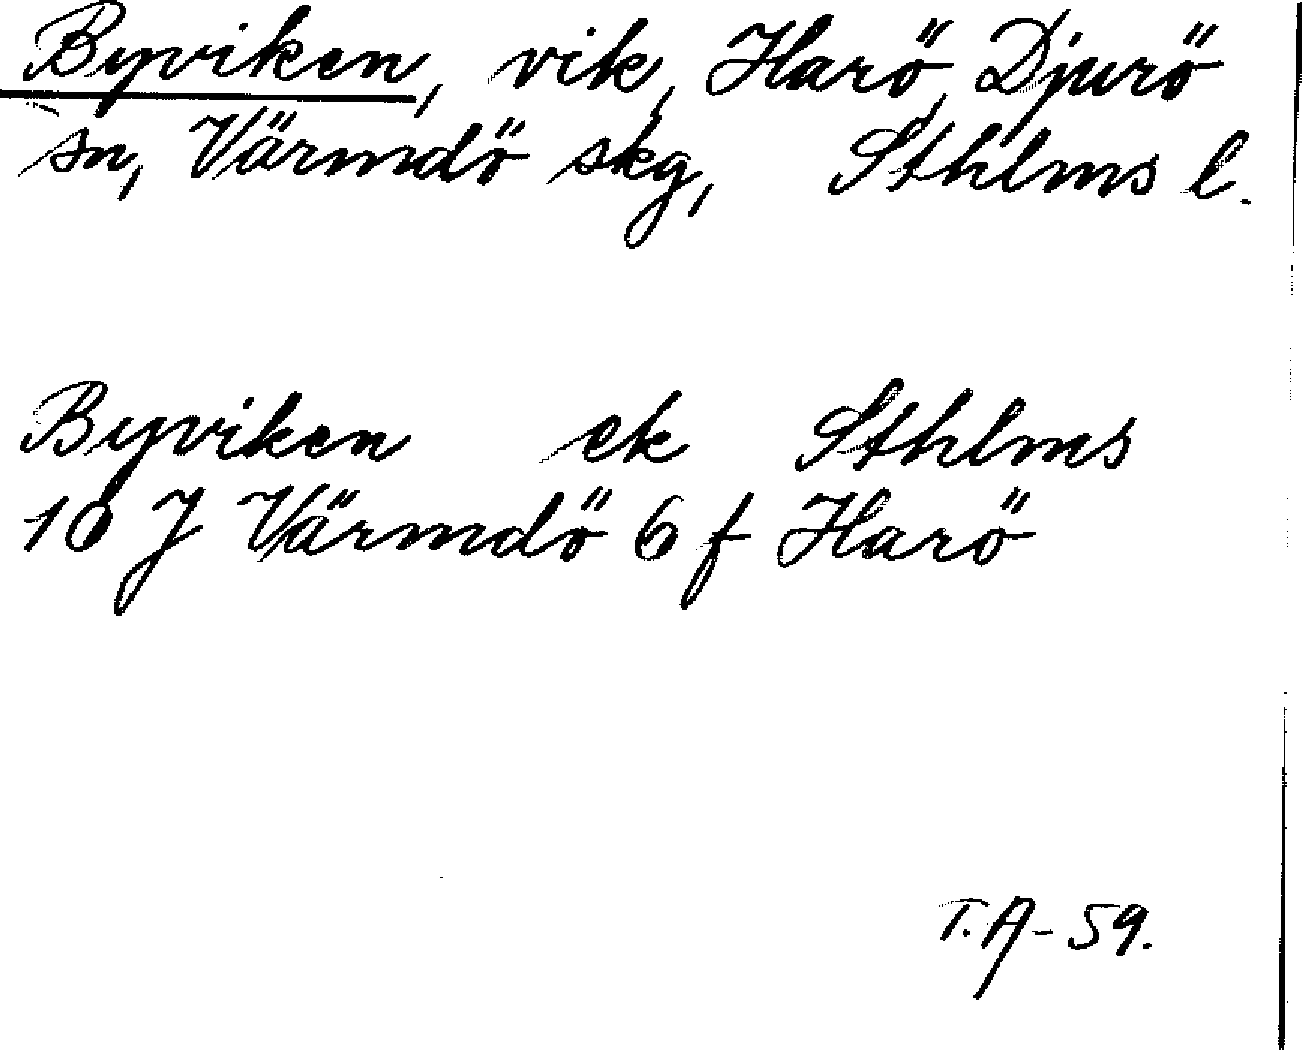 Byviken, vik, Harö, Djurö
sn, Värmdö skg, Sthlms l.
Byviken ek Sthlms
10 J Värmdö 6 f Harö
T.A-59.